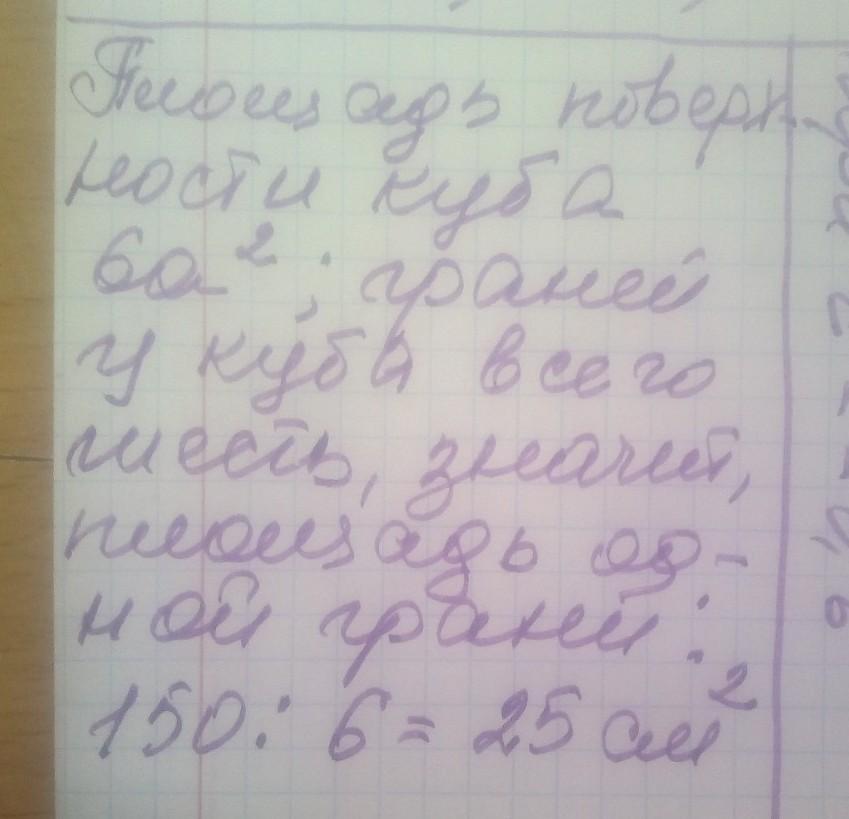 Площадь поверх-
ности куба
6a²; граней
у куба всего
шесть, значит,
площадь од-
ной граней:
150 : 6 = 25 см²